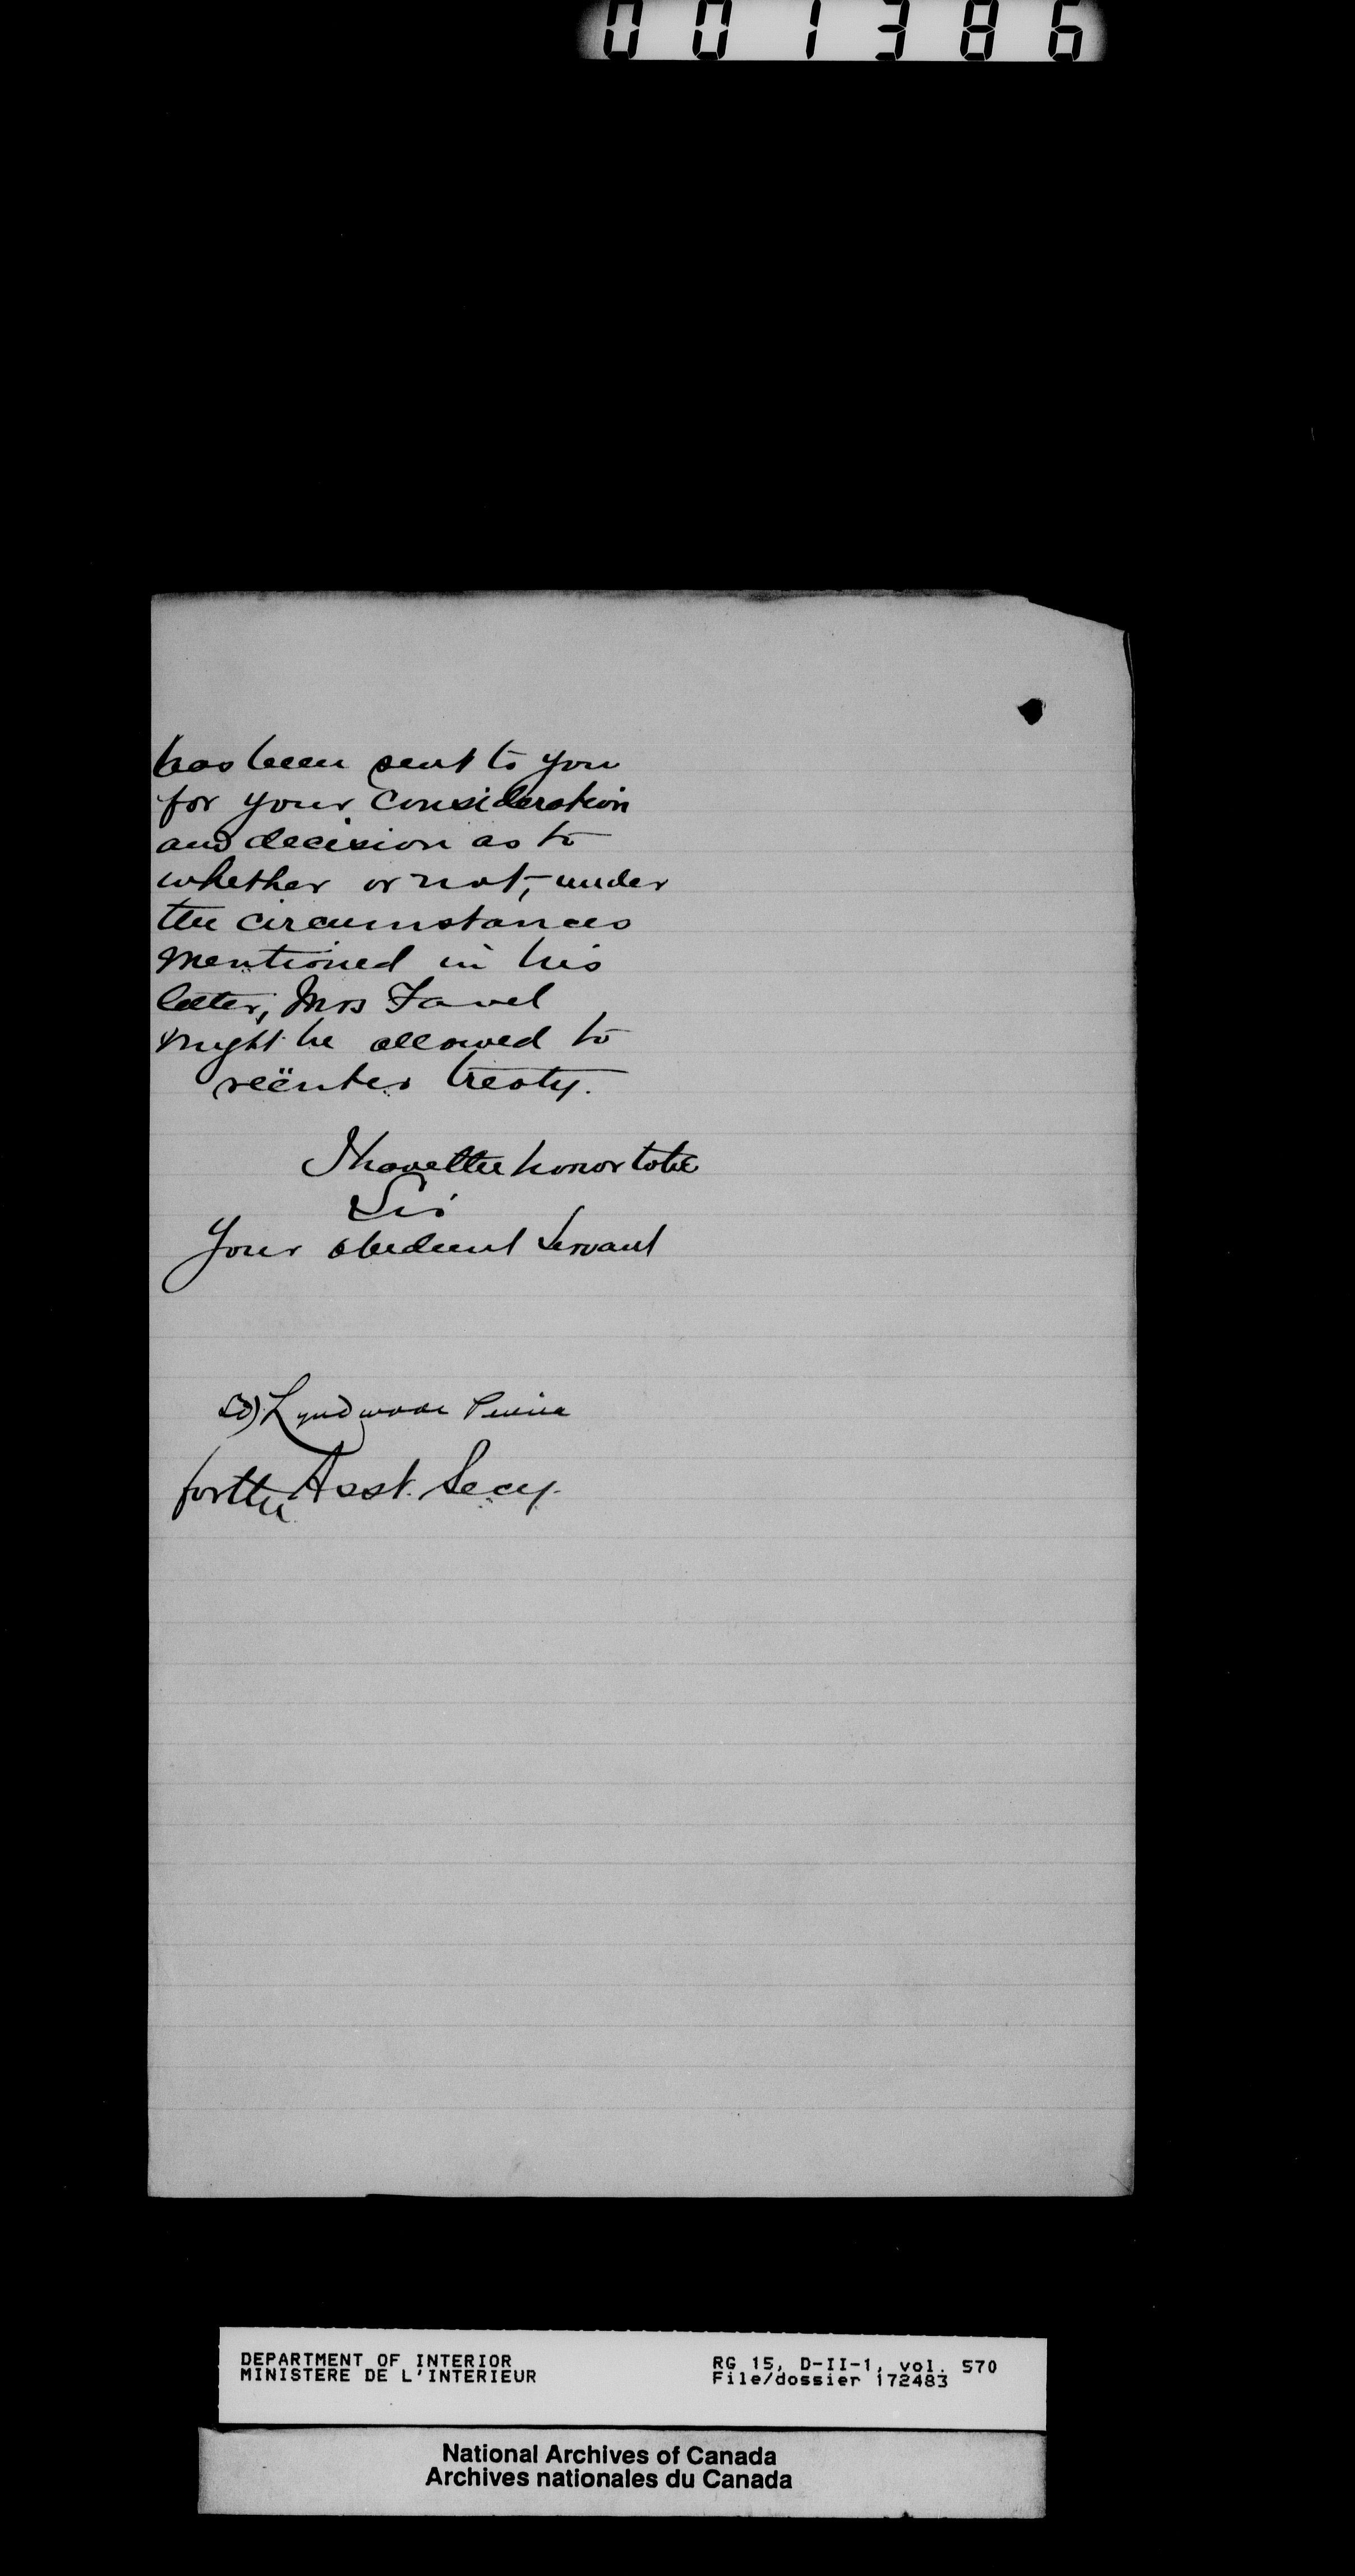 001386
has been sent to you
for your consideration
and decision as to
whether or not, under
the circumstances
mentioned in his
letter, Mrs Favel
might be allowed to
reënter treaty.
I have the honor to be
Sir
Your obedient Servant
Sd) Lyndwode Pereira
for the Asst. Secy.
DEPARTMENT OF INTERIOR
MINISTERE DE L'INTERIEUR
RG 15, D-II-1, vol. 570
File/dossier 172483
National Archives of Canada
Archives nationales du Canada